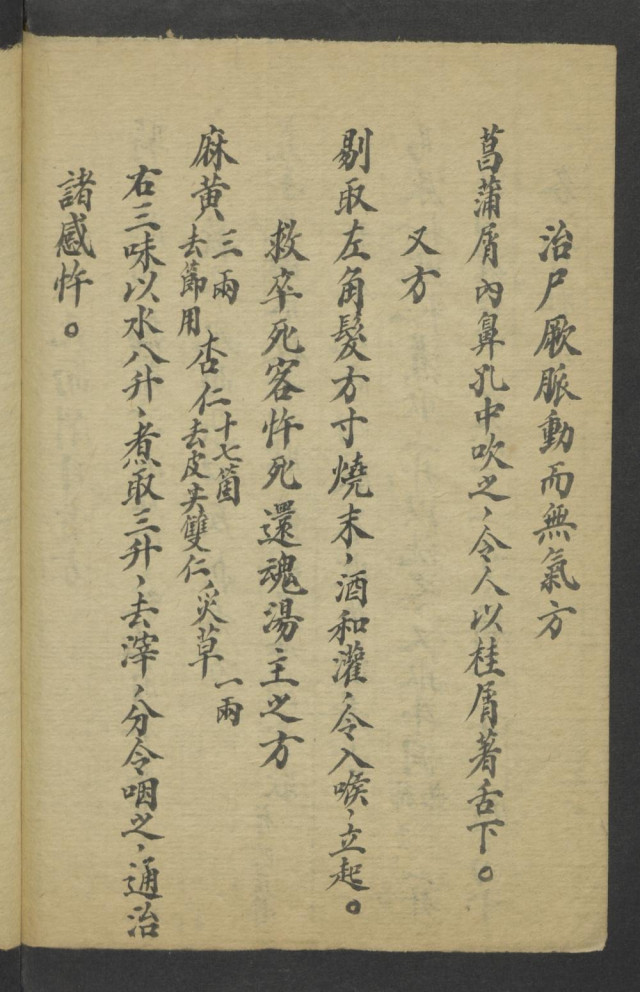 治尸厥脈動而無氣方
菖蒲屑內鼻孔中吹之，令人以桂屑著舌下。
又方
剔取左角髮方寸燒末，酒和灌，令入喉，立起。
救卒死客忤死還魂湯主之方
麻黄三兩去節用 杏仁十七箇去皮尖雙仁，炙草一兩
右三味以水八升，煮取三升，去滓，分令咽之，通治
諸感忤。